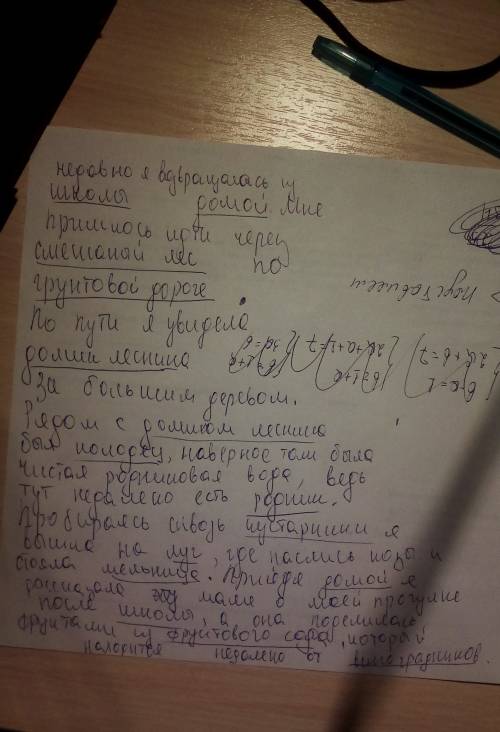 недавно я вдвращалась из
школы домой. Мне
пришлось идти через
смешаный лес по
грунтовой дороге.
По пути я увидела
домик лесника
За большим деревом.
Рядом с домиком лесника
был колодец, наверное там была
чистая родниковая вода, ведь
тут недалеко есть родник.
Пробираясь сквозь кустарники я
вышла на луг, где паслись коза и
стояла мельница. Прийдя домой я
рассказала маме о моей прогулке
после школы, а она поделилась
фруктами из фруктового сада, который
находится недалеко от виноградников.
Подставляем
2a+b=7